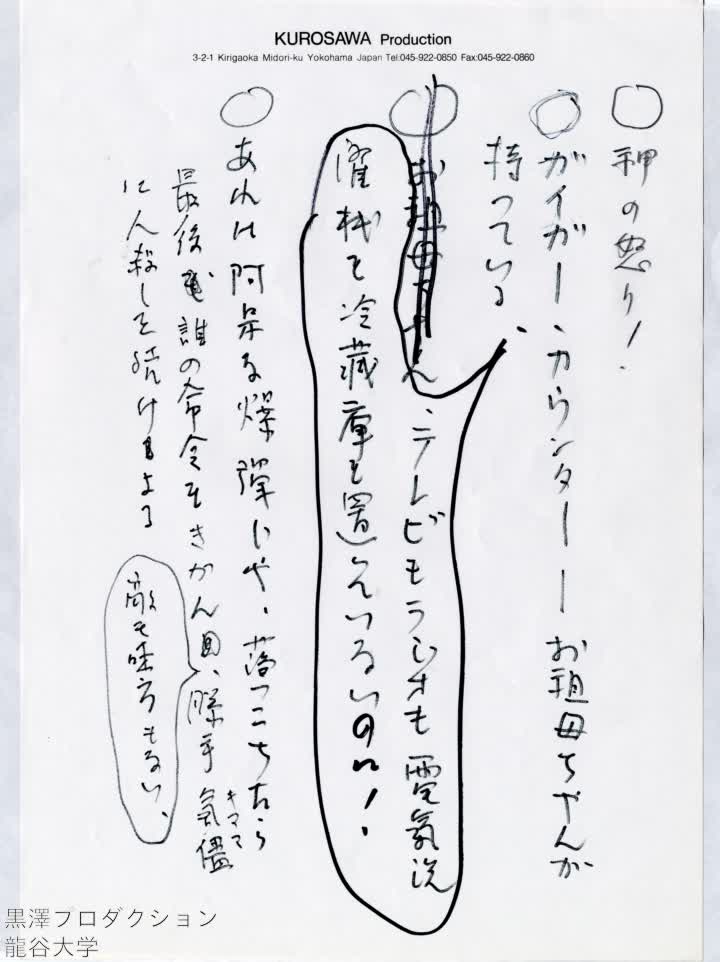 KUROSAWA Production
3-2-1 Kirigaoka Midori-ku Yokohama Japan Tel:045-922-0850 Fax:045-922-0860
○ 神の怒り!
○ ガイガー、カウンター ー お祖母ちゃんが
持っている、
○ お祖母ちゃん、テレビもラジオも電気洗
濯机も冷蔵庫も置いていないのに!
○ あれは阿呆な爆弾じや、落つこちたら
最後誰の命令もきかん、勝手気儘
キママ
に人殺しを続けよる
敵も味方もない、
黒澤プロダクション
龍谷大学